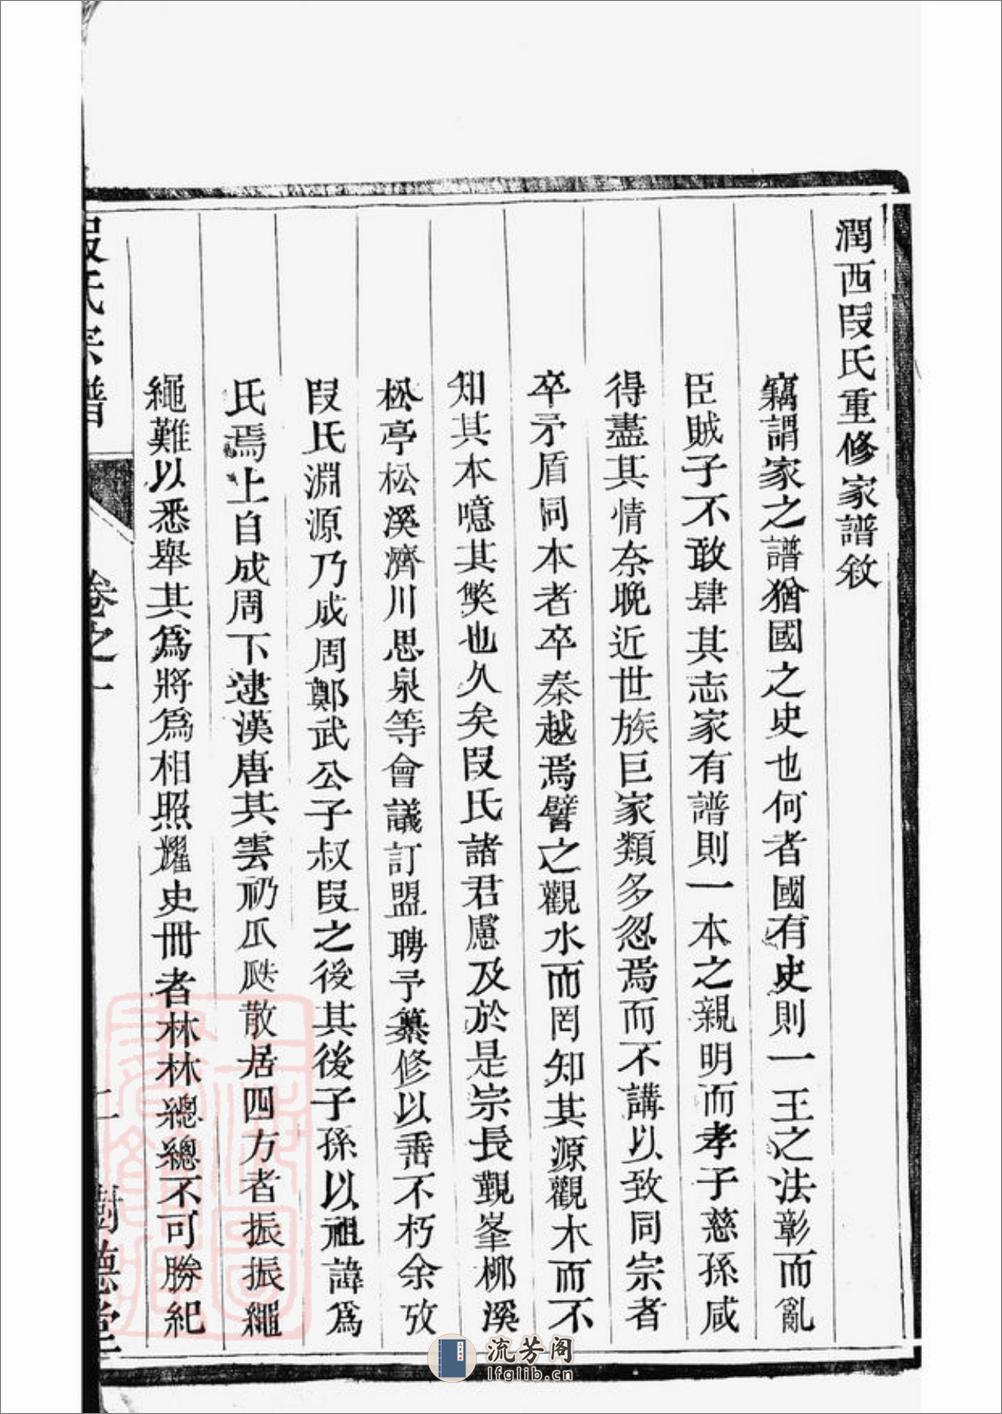 潤西段氏重修家譜敘
竊謂家之譜猶國之史也何者國有史則一王之法彰而亂
臣賊子不敢肆其志家有譜則一本之親明而孝子慈孫咸
得盡其情奈晚近世族巨家類多忽焉而不講以致同宗者
卒矛盾同本者卒秦越焉譬之觀水而罔知其源觀木而不
知其本噫其獘也久矣段氏諸君慮及於是宗長覲峯柳溪
松亭松溪濟川思泉等會議訂盟聘予纂修以垂不朽余攷
段氏淵源乃成周鄭武公子叔段之後其後子孫以祖諱爲
氏焉上自成周下逮漢唐其雲礽瓜瓞散居四方者振振繩
繩難以悉舉其爲將爲相照耀史冊者林林總總不可勝紀
段氏宗譜 卷之一 二 樹德堂
流芳阁
lfglib.cn